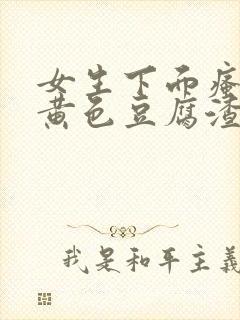 女生下面瘙
黄色豆腐渣
我是和平主義